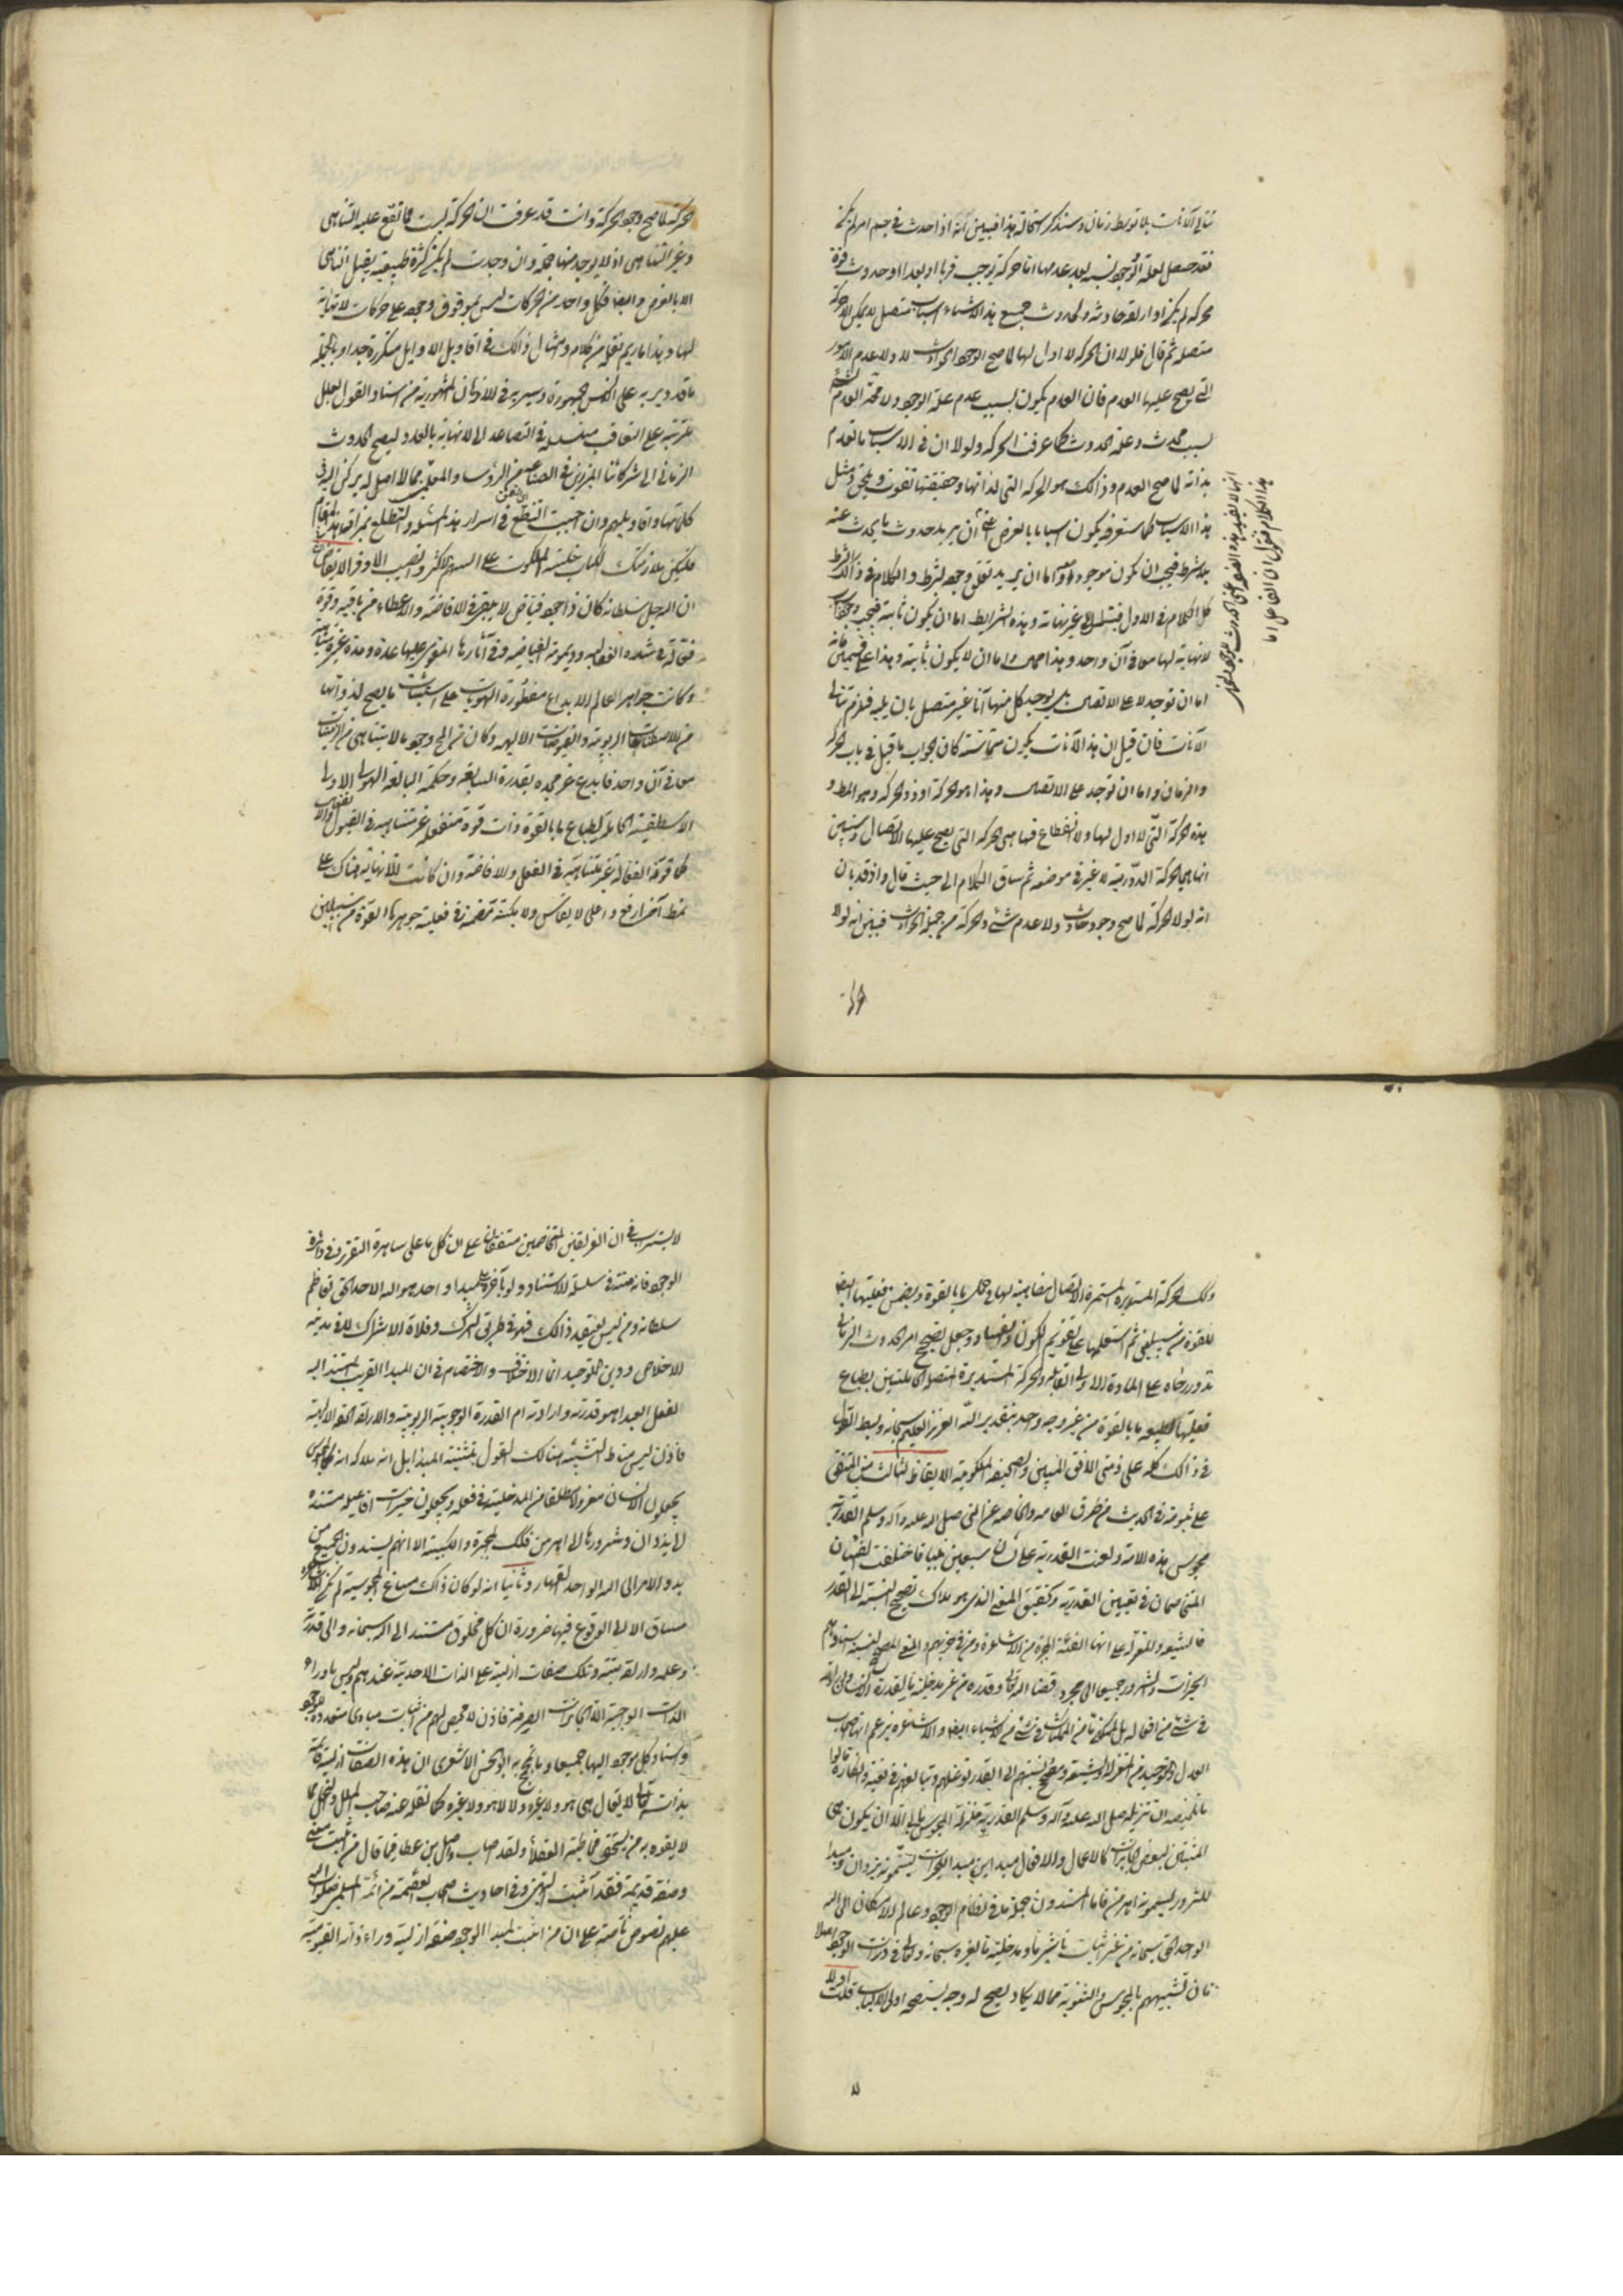 تتالي الآنات بلا توسط زمان وسنذكر استحالة هذا فبين انه اذا حدث في جسم امر لم يكن
فقد حصل لعلة الوجود نسبة بعد عدمها اما حركة توجب قربا او بعدا او حدوث قوة
محركة لم يكن او ارادة حادثة ولحدوث جميع هذه الاشياء اسباب تتصل لا يمكن الا بحركة
متصلة ثم قال فلولا ان الحركة لا اول لها لما صح الوجود الحوادث ولا عدم الامور
التي يصح عليها العدم فان العدم يكون بسبب عدم علة الوجود ولا محالة العدم
لسبب محدث وعلة الحدوث كما عرفت الحركة ولولا ان في الاسباب ما تقدم
بذاته لما صح العدم وذلك هو الحركة التي لذاتها وحقيقتها تفوت وتلحق ومثل
هذا الاسباب كما ستعرفه يكون اسبابا بالعرض اعني ان يريد حدوث ما يحدث عنه
بلا شرط فيجب ان يكون موجودا معه واما ان يريد تعلق وجوده بشرط والكلام في ذلك الشرط
كالكلام في الاول فيتسلسل الى غير نهاية وهذه الشرايط اما ان يكون ثابتة فيجب وجود اسباب
لا نهاية لها معا في آن واحد وهذا محال واما ان لا يكون ثابتة وهذا على قسمين فانه
اما ان توجد لا على الاتصال بل يوجد كل منها آنا غير متصل بان يليه فيلزم تتالي
الآنات فان قيل ان هذه الآنات يكون متماسة كان الجواب ما قيل في باب الحركة
والزمان واما ان توجد على الاتصال وهذا هو الحركة او ذو الحركة وهو المط و
هذه الحركة التي لا اول لها ولا انقطاع فيها هي الحركة التي يصح عليها الاتصال وسنبين
انها هي الحركة الدورية لا غير في موضعه ثم ساق الكلام الى حيث قال واذ قد بان
انه لولا الحركة لما صح وجود حادث ولا عدم شئ والحركة من جملة الحوادث فبين انه لولا
هذا الكلام فنقول ان الفاعل اما
حركة لما صح وجود الحركة وانت قد عرفت ان الحركة ليست مما تقع عليه التناهي
وغير التناهي اذ لا يوجد منها جملة وان وجدت لم يكن كثرة طبيعية يقبل التناهي
الا بالعرض وايضا فكل واحد من الحركات ليس بموقوف وجوده على حركات لا نهاية
لها وهذا ما ريم نقله من كلامه وامثال ذلك في اقاويل الاوايل متكررة جدا وبالجملة
ما قد دير به على السن الجمهور وسير به في الاذهان المشهورية من اسناد القول بالعلل
المترتبة على التعاقب متسلسلة في التصاعد الى لا نهاية بالعدد ليصح الحدوث
الزماني الى شركائنا المبرزين في الصناعة من الرؤساء والمعلمين مما لا اصل له يركن اليه في
كلماتها واقاويلهم وان احببت التضلع في اسرار هذه المسئلة والتطلع بمزاقها
فليكن ملازمتك لكتاب خلسة الملكوت على السهم الاكثر والنصيب الاوفر الايقاض
ان الله جل سلطانه كان ذا جود فياض لا ينقص في الافاضة والاعطاء من باقيه وقوة
فعالة في شدة الفعالية وديمومة الفياضية وفي آثارها المتقرر عليها عدة ومدة غير متناهية
وكانت جواهر العالم الابداع مفطورة الهويات على استثبات ما يصح لذواتها
من الافاضات الربوبية والفيوضات الالهية وكان من المح وجود ما لا يتناهي من الزمانيات
معا في آن واحد فابدع عز مجده بقدرته السابقة وحكمته البالغة الهيولى الاولى
الاسطقسية الحاملة لطباع ما بالقوة ذات قوة منفعلة غير متناهية في القبول والانفعال
كما قوته الفعالة غير متناهية في الفعل والافاضة وان كانت اللانهاية هناك على
نمط آخر ارفع واعلى لا يقاس ولا يكتنه متضمنة في فعلية جوهرها القوة من سبيلين
وتلك الحركة المستديرة المستمرة الاتصال مضاهية لها في حمل ما بالقوة ويتضمن فعليتها ايضا
للقوة من سبيلين ثم استعملهما على تقويم الكون والفساد وجعل تصحيح امر الحدوث الزماني
تدور رحاه على المادة الاولى القابلة والحركة المستديرة المتصلة الحاملتين بطباع
فعليتها الطبيعة ما بالقوة من غير وجه واحد بتقدير الله العزيز العليم سبحانه وبسط القول
في ذلك كله على ذمتي الافق المبين والصحيفة الملكوتية الايقاظ الثالث من المتفق
على ثبوته في الحديث من طرق العامة والخاصة عن النبي صلى الله عليه وآله وسلم القدرية
مجوس هذه الامة ولعنت القدرية على لسان سبعين نبيا فاختلفت الفئتان
المتخاصمان في تعيين القدرية وتحقيق المعنى الذي هو ملاك تصحيح النسبة الى القدر
فالشيعة والمعتزلة على انها الفئة المجبرة من الاشاعرة ومن في حزبهم والمعنى المصحح للنسبة اسنادهم
الخيرات والشرور جميعا الى مجرد قضاء الله تعالى وقدره من غير مدخلية ما لقدرة الانسان وارادته
في شئ من افعاله بل للممكن ما من الممكنات في شئ من الاشياء ايضا والاشاعرة يزعم انها اصحاب
العدل والتوحيد من المعتزلة والشيعة ومصحح نسبتهم الى القدر توغلهم وتبالغهم في نفيه وانكاره قالوا
ما ناهضه ان تنزيله صلى الله عليه وآله وسلم القدرية منزلة المجوس يابى الا ان يكون هي
المثبتين لبعض الكائنات كالاعمال والافعال مبدأين مبدأ الخيرات يسمونه يزدان ومبدأ
للشرور يسمونه اهرمن فاما المسندون جملة ما في نظام الوجود وعالم الامكان الى الله
الواحد الحق سبحانه من غير اثبات تأثير ما ومدخلية ما لغيره سبحانه وتعالى في ذرات الوجود اصلا
فان تشبيههم بالمجوس والثنوية مما لا يكاد يصح له وجه يستصحه اولى الالباب قلت اولا
لا يستريب في ان الفريقين المتخاصمين متفقان على ان كل ما على ساهرة التقرر في دائرة
الوجود فانه منته في سلسلة الاستناد ولو بآخره الى مبدأ واحد هو الله الاحد الحق تعاظم
سلطانه ومن ليس يعتقد ذلك فهو في طريق الشرك وفلاة الاشراك لا في مدينة
الاخلاص ودين التوحيد انما الاختلاف والاختصام في ان المبدأ القريب المستند اليه
الفعل العبد اهو قدرته وارادته ام القدرة الوجوبية الربوبية والارادة الحقة الالهية
فاذن ليس مناط التشبيه هنالك القول بتثنية المبدأ بل انه ملاكه انه كما المجوس
يجعلون الانسان معزولا مطلقا من المدخلية في فعله ويجعلون خيرات افاعيله مستندة
الى يزدان وشرورها الى اهرمن فكذلك المجبرة والكسبية الا انهم يسندون الجميع من
بدو الامر الى الله الواحد القهار وثانيا انه لو كان ذلك مساغ المجوسية لم تكن للاشعرية
مساق الا الى الوقوع فيها ضرورة ان كل مخلوق مستند الى الله سبحانه والى قدرته
وعلمه وارادته وتلك صفات ازلية على الذات الاحدية عندهم وليس ما وراء
الذات الواجبة الا الجائزات الصرفة فاذن لا محيص لهم من اثبات مبادئ متعددة للوجود
واسناد كل موجود اليها جميعا وما نجح به ابو الحسن الاشعري ان هذه الصفات ازلية قائمة
بذاته تعالى لا يقال هي هو ولا غيره ولا لا هو ولا غيره كما نقله عنه صاحب الملل والنحل مما
لا يفوه به من يستحق مخاطبة العقلاء ولقد اصاب واصل بن عطا فيما قال من اثبت معنى
وصفة قديمة فقد اثبت الهين وفي احاديث اصحاب العصمة من ائمة المسلمين صلوات الله
عليهم نصوص ناصة على ان من اثبت لمبدأ الوجود صفة ازلية وراء ذاته القيومية